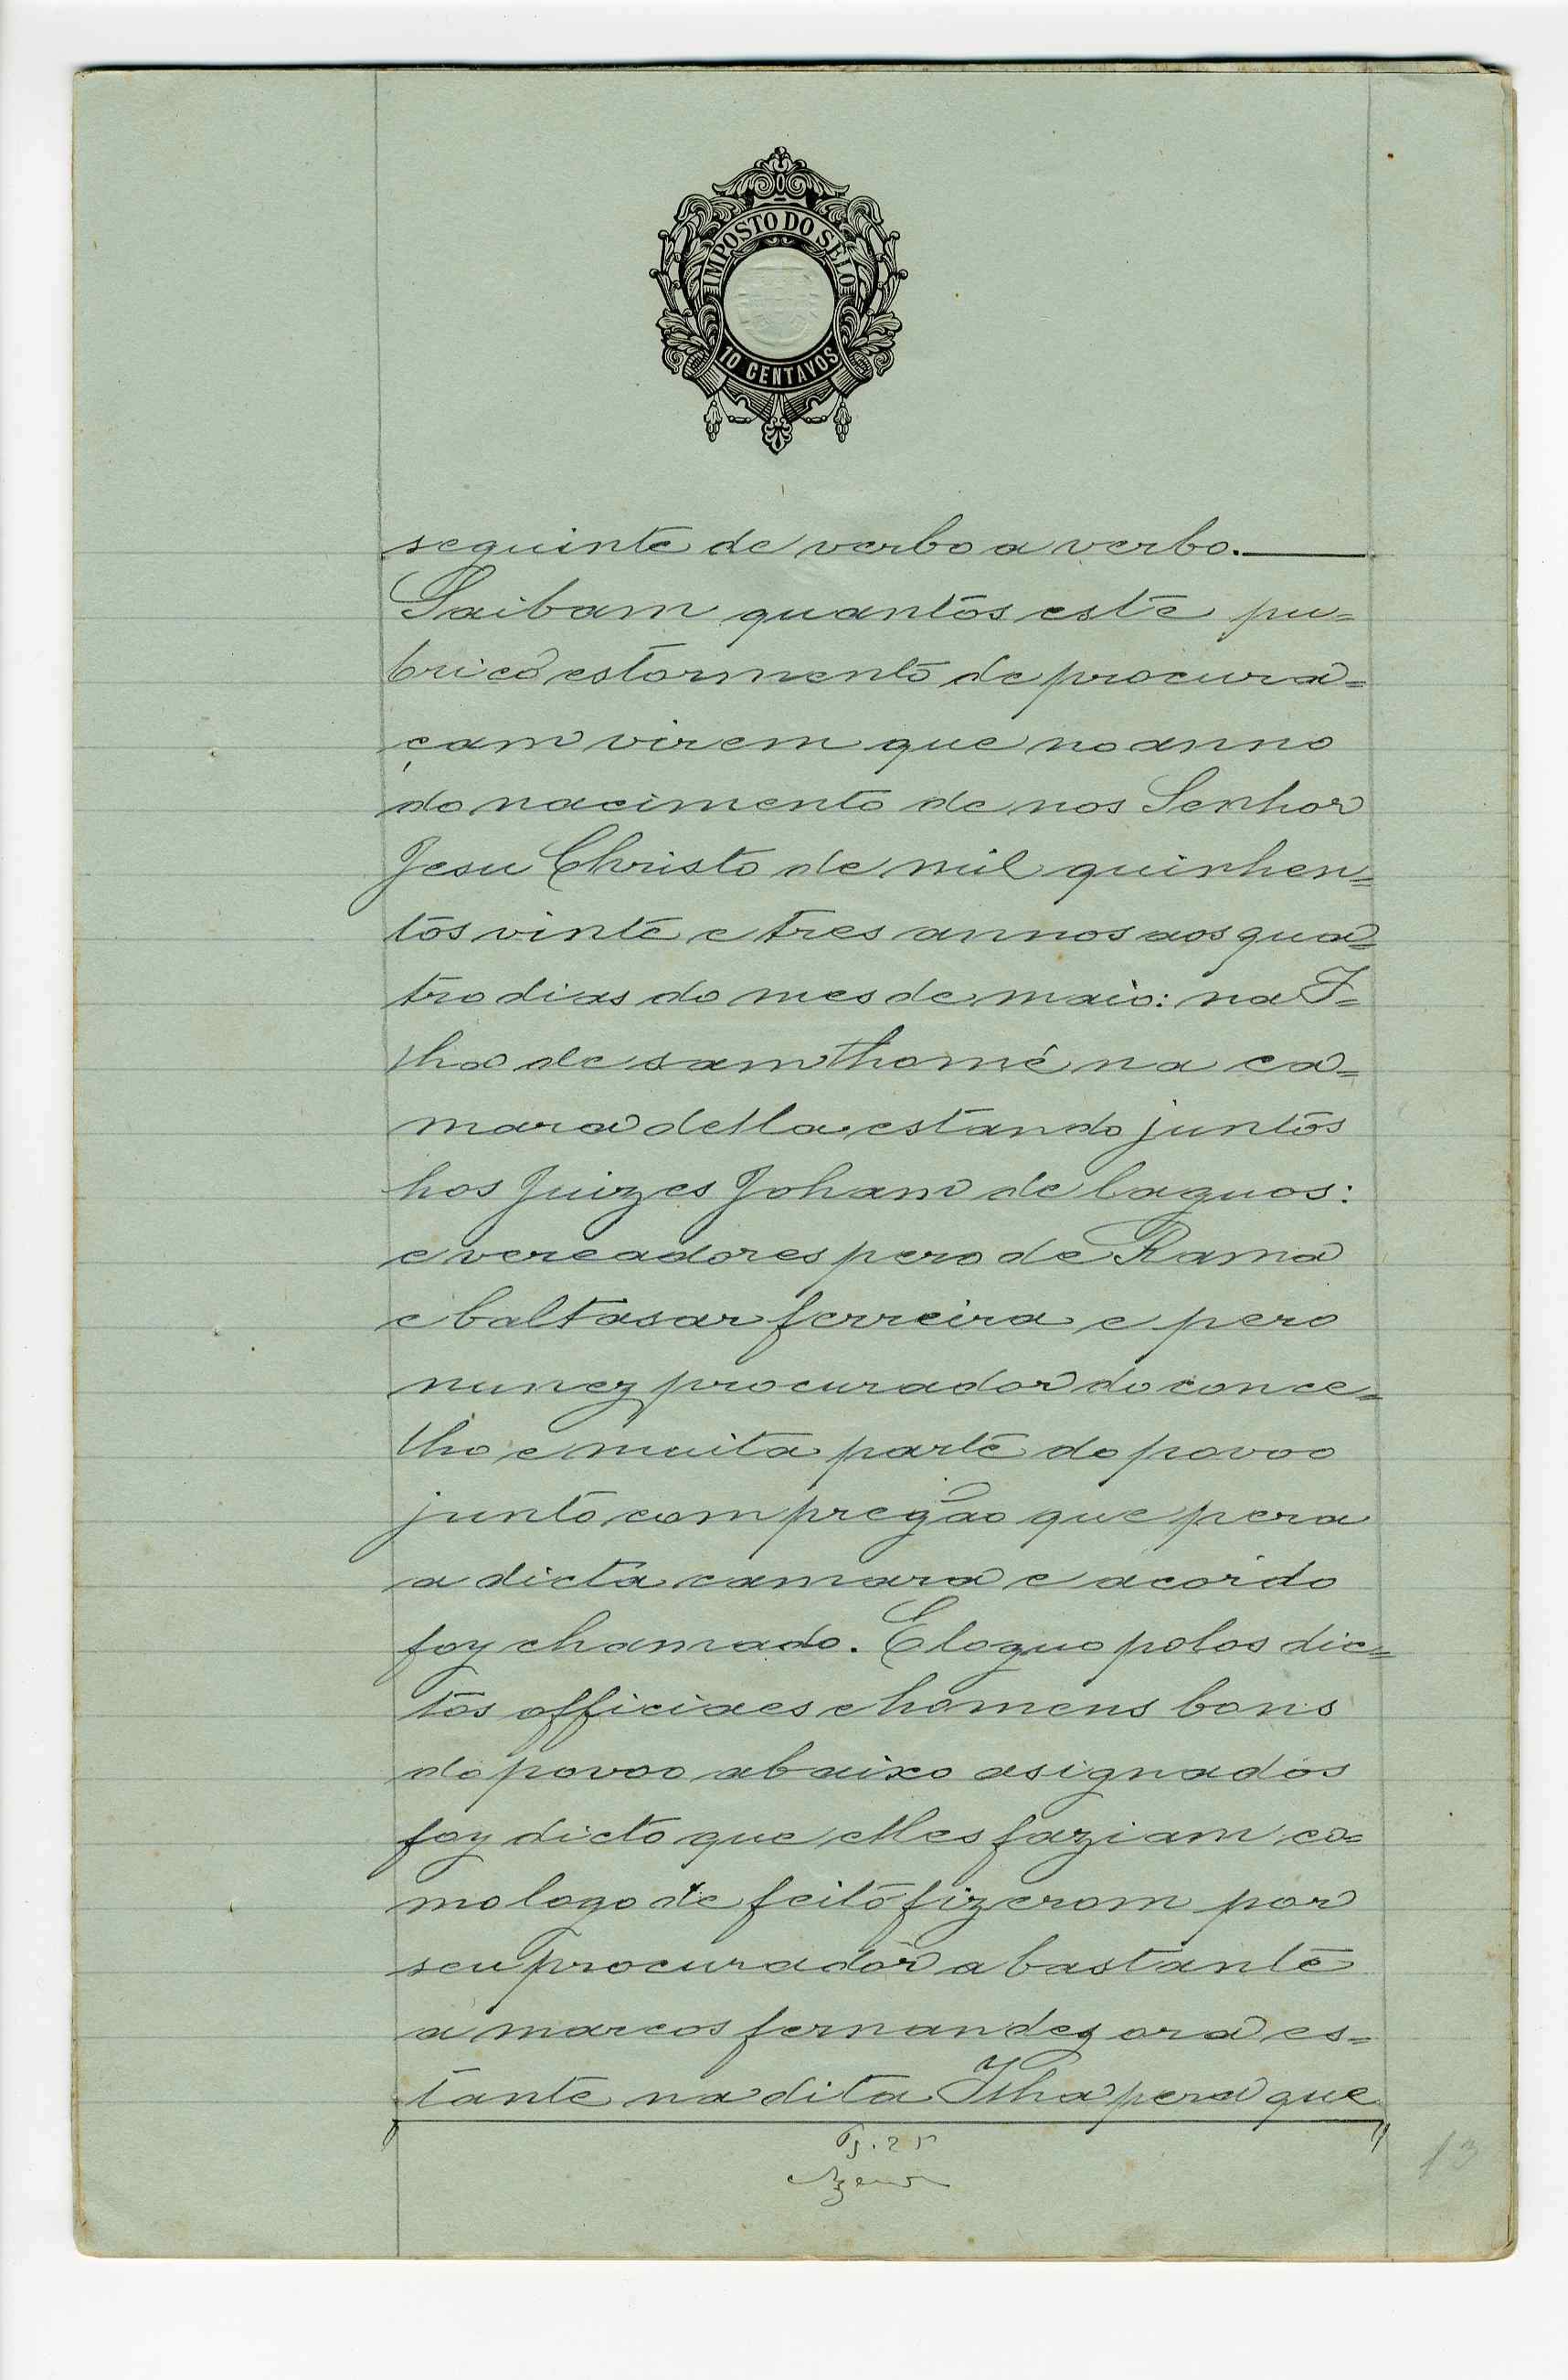 IMPOSTO DO SELO
10 CENTAVOS
seguinte de verbo a verbo.
Saibam quantos este pu=
brico estormento de procura=
çam virem que no anno
do nacimento de nos Senhor
Jesu Christo de mil quinhen=
tos vinte e tres annos aos qua=
tro dias do mes de maio: na I=
lha de sam Thomé na ca=
mara della estando juntos
hos Juizes Joham de laguos:
e vereadores pero de Rama
e baltasar ferreira e pero
nunez procurador do conce=
lho e muita parte do povoo
junto com pregão que pera
a dicta camara e acordo
foy chamado. E loguo polos dic=
tos officiaes e homens bons
do povoo abaixo asignados
foy dicto que elles faziam co=
mo logo de feito fizerom por
seu procurador abastante
a marcos fernandez ora es=
tante na dita Ilha pera que
13